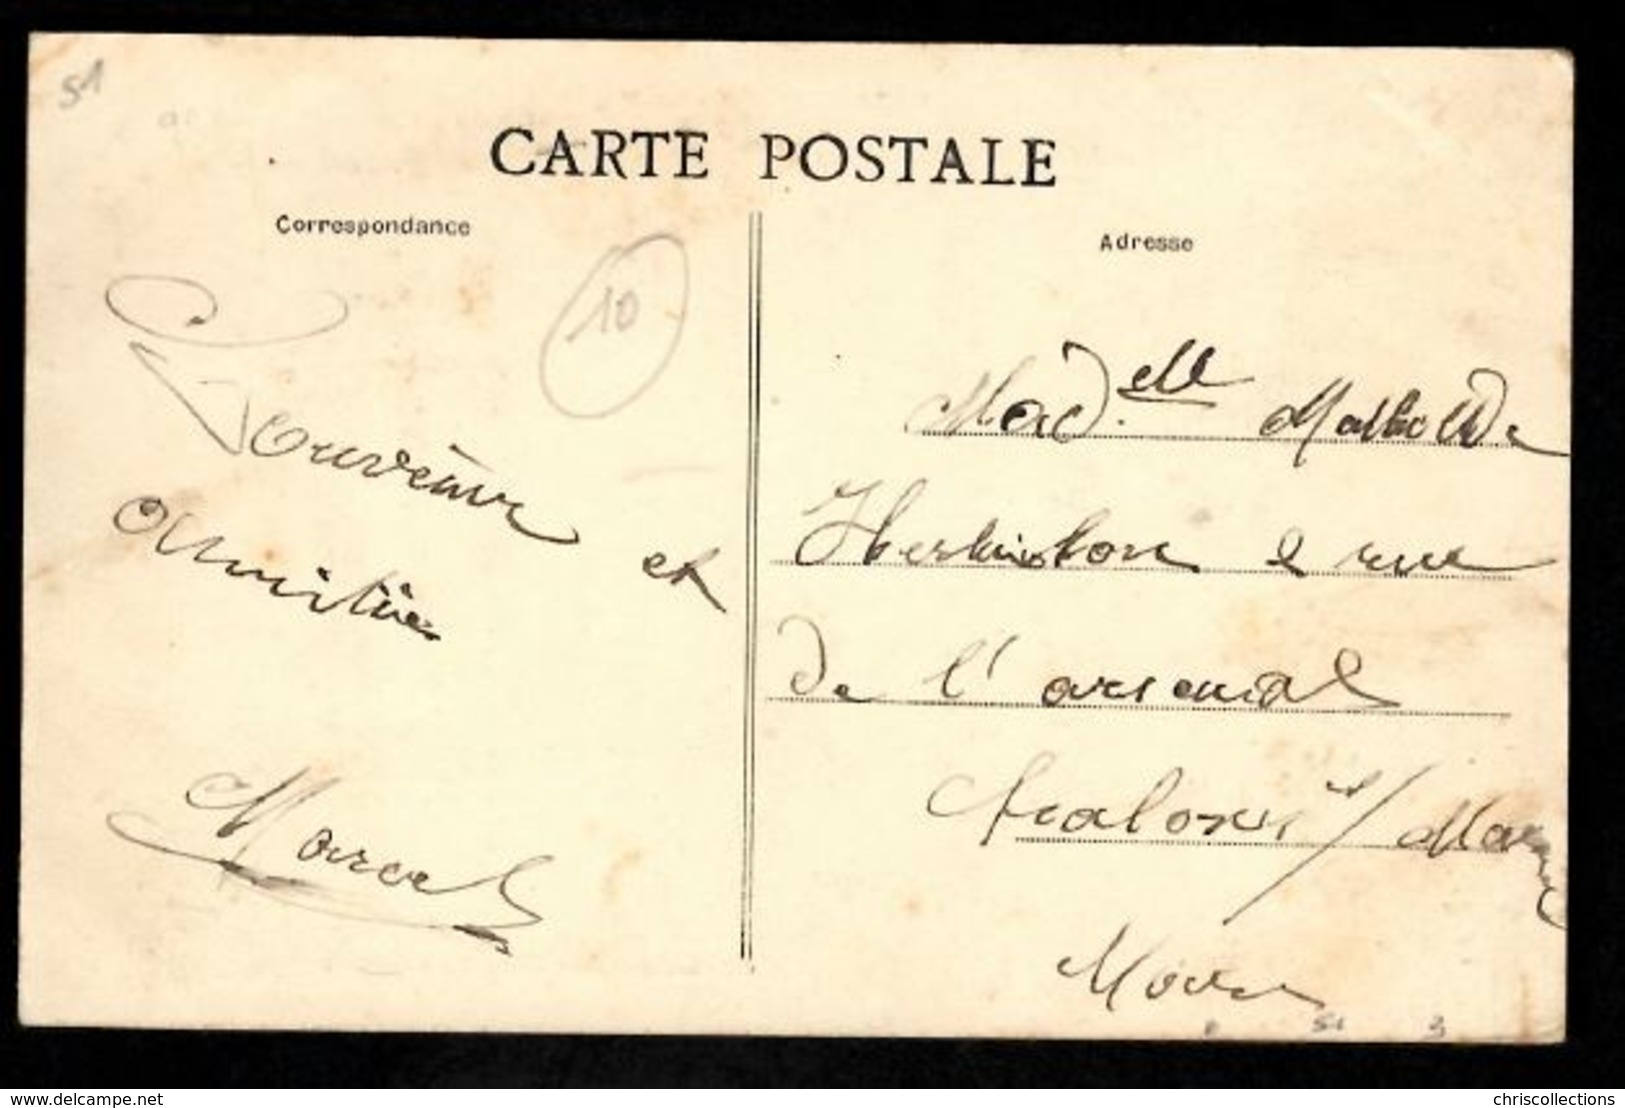 51
CARTE POSTALE
Correspondance
Adresse
10
Souvenir et
amitiés
Marcel
Mad.elle Mathilde
2 rue
de l'arsenal
Chalons s/ Marne
Marne
51 3
www.delcampe.net
chriscollections